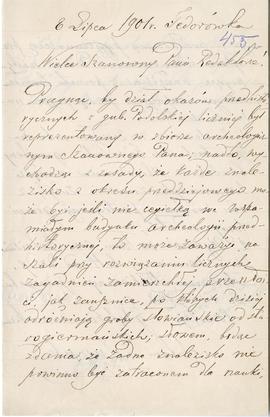 6 Lipca 1901 r. Fedorówka
455
Wielce Szanowny Panie Redaktorze!
Pragnąc, by dział okazów przedhisto-
rycznych z gub. Podolskiej liczniej był
reprezentowany w zbiorze archeologicz-
nym Szanownego Pana; nadto, wy-
chodząc z zasady, że każde znale-
zisko z okresu przedziejowego mo-
że być jeśli nie cegiełką we wspa-
niałym budynku archeologii przed-
historycznej, to może zaważyć na
szali przy rozwiązaniu licznych
zagadnień zamierzchłej przeszłoś-
ci, jak zausznice, po których dzisiaj
odróżniają groby słowiańskie od sta-
rogiermańskich; słowem, będąc
zdania, że żadne znalezisko nie
powinno być zatraconem dla nauki,